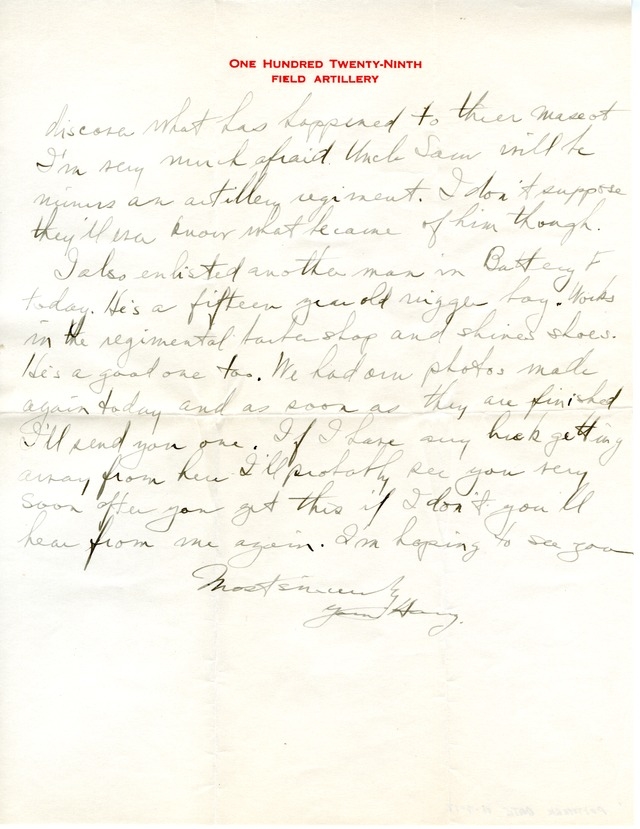 ONE HUNDRED TWENTY-NINTH
FIELD ARTILLERY
discover what has happened to their mascot
I'm very much afraid Uncle Sam will be
minus an artillery regiment. I don't suppose
they'll ever know what became of him though.
I also enlisted another man in Battery F
today. He's a fifteen year old nigger boy. Works
in the regimental barber shop and shines shoes.
He's a good one too. We had our photos made
again today and as soon as they are finished
I'll send you one. If I have any luck getting
away from here I'll probably see you very
soon after you get this if I don't you'll
hear from me again. I'm hoping to see you
Most sincerely
Yours Harry.